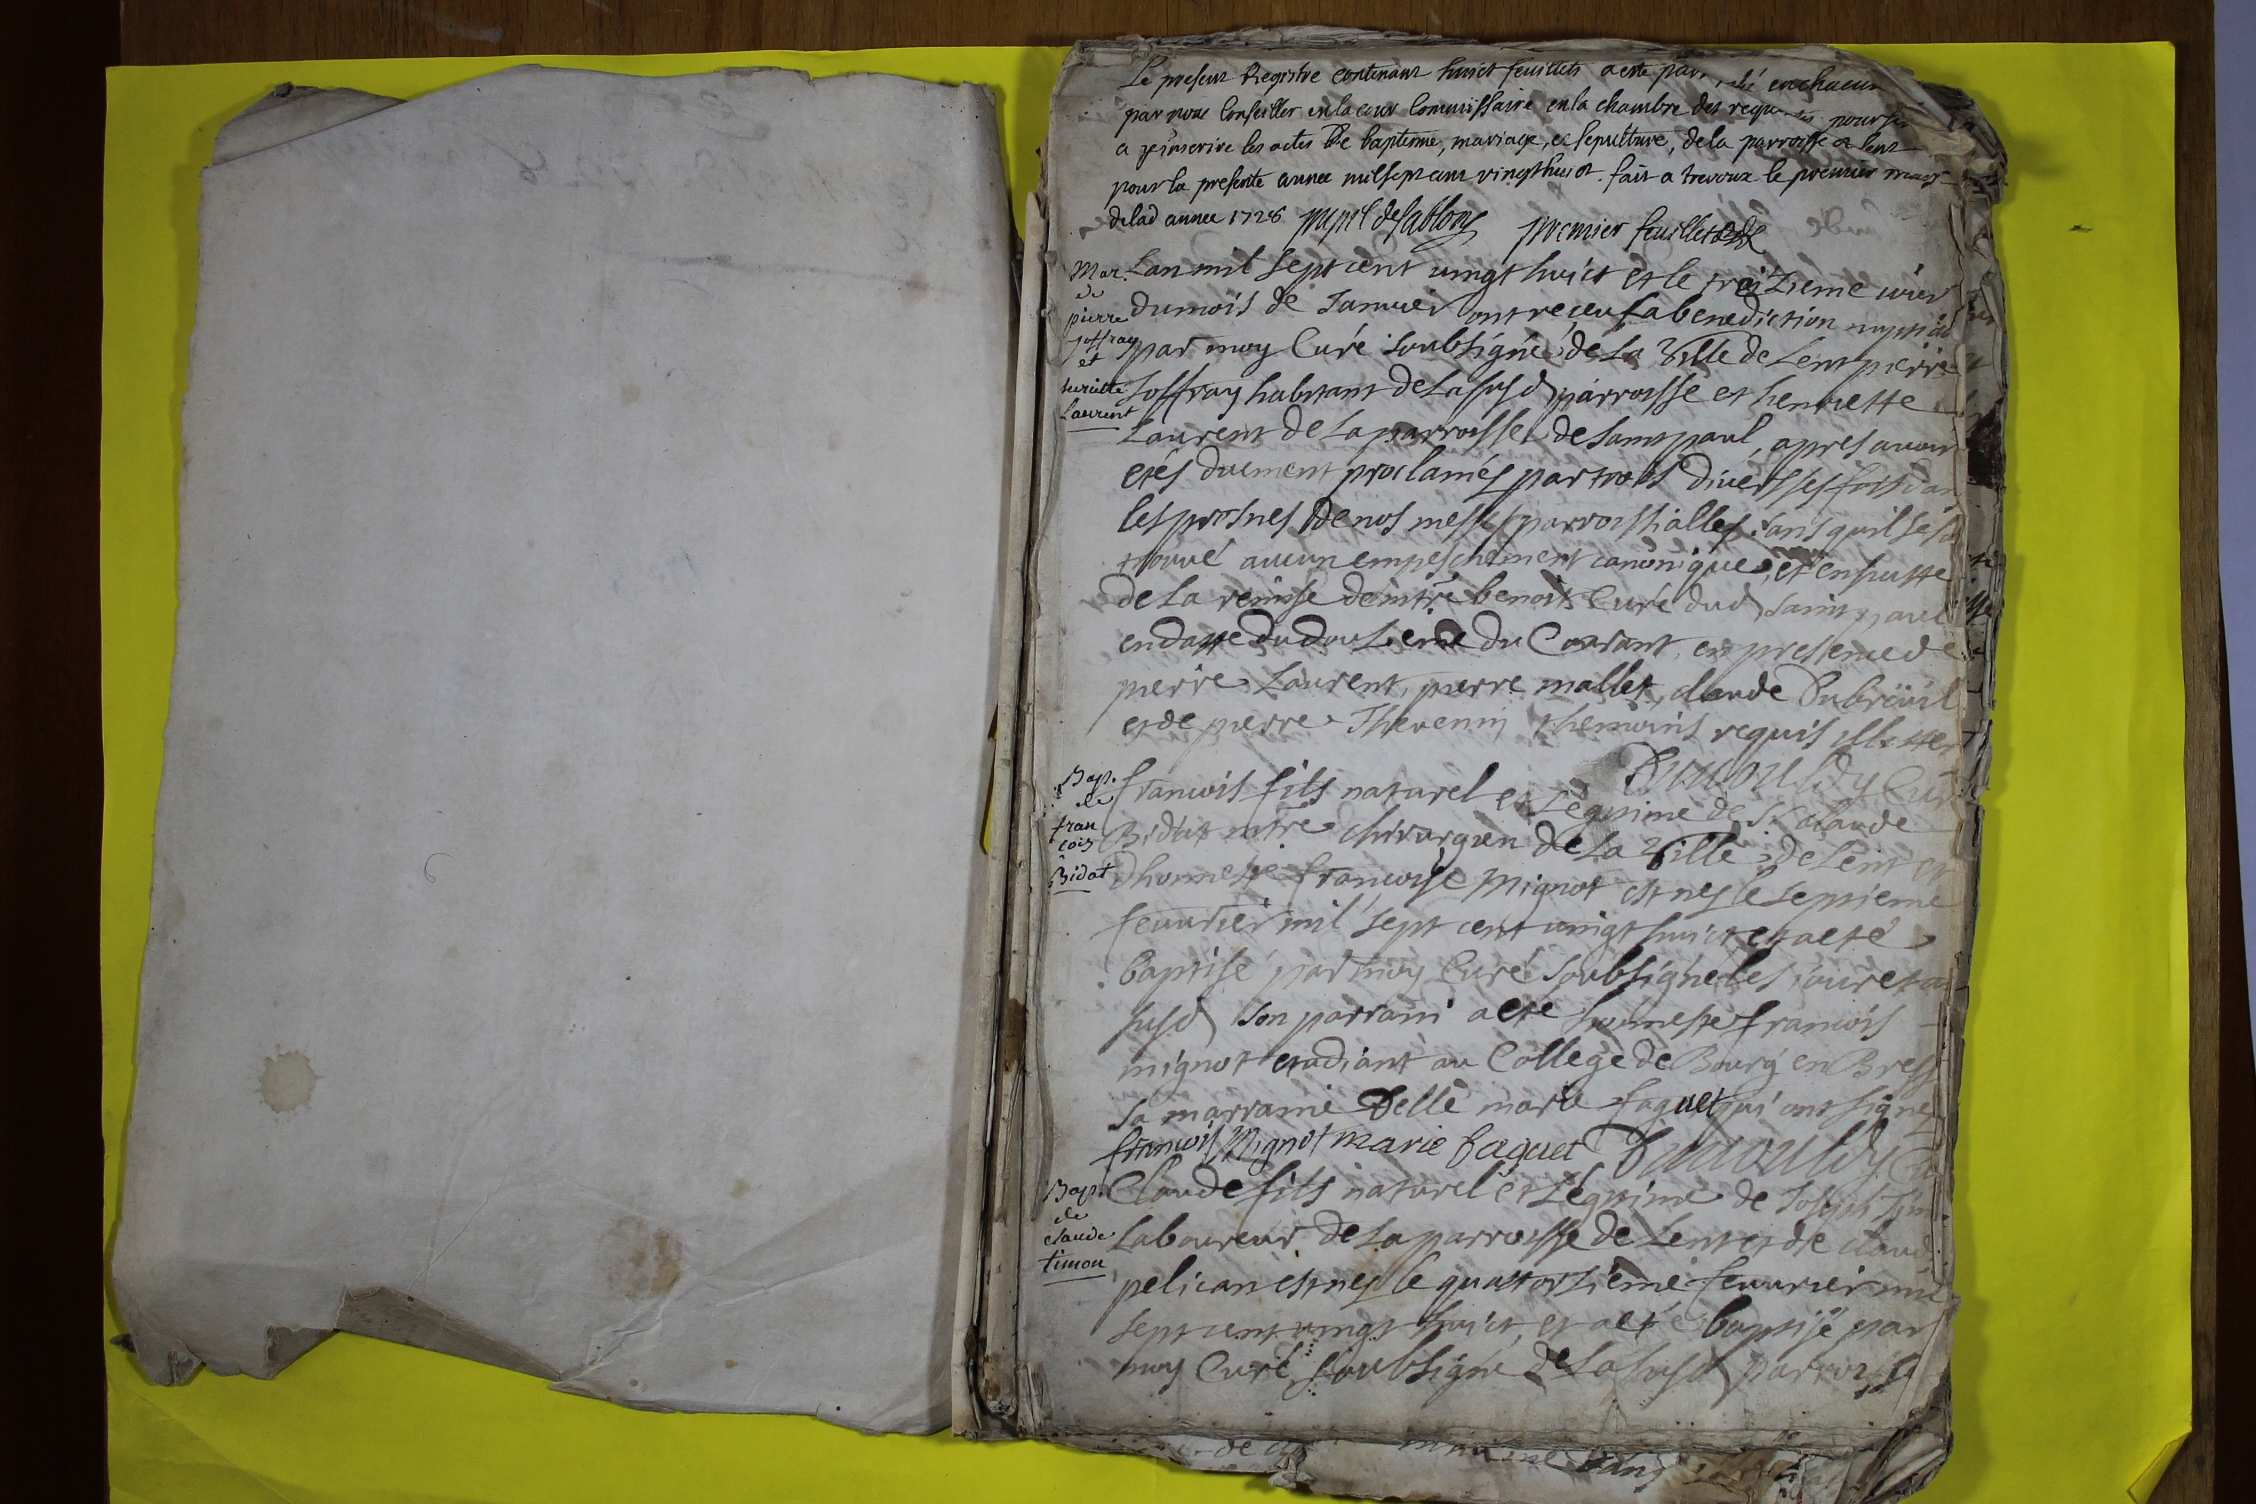 Le present Registre contenant huict feuillets a esté par enchacun
par nous Conseiller en la cour Commissaire en la chambre des requ pour
a y inscrire les actes De baptesme, mariage, et sepulture, de la parroisse de lent
pour la presente année mil sept cent vingt huict. fait a trevoux le premier mars
delad année 1728 pupil de sablons premier feuillet
Mar.
de
pierre
joffray
et
henriette
Laurent
Lan mil sept cent vingt huict et le treizieme iour
du mois de Januier ont receu la benediction nuptial
par moy Curé soubsigné de la Ville de Lent pierre
Joffray habitant de la susd parroisse et henriette
Laurent de la parroisse de saint paul, apres auoir
etés duement proclamés par trois diuersses fois dan
les prosnes de nos messes parroissialles sans quil se
trouué aucun empeschement canonique, et ensuitte
de la remise de mtre benoit Curé dud saint paul
en datte du douzieme du Courant, en presence de
pierre Laurent, pierre mallet, claude Dubreüil
et de pierre Theuenin themoins requis illetter
Cur
Bap.
de
fran
cois
Bidat
francois fils naturel et Légitime de Sr claude
Bidat mtre chirurgien de la Ville de Lent et
dhonneste francoise mignot est nes le septieme
feuurier mil sept cent uingt huict et a eté
baptisé par moy Curé soubsigné les iour et an
susd son parrain a eté honneste francois
mignot etudiant au College de Bourg en Bress
sa marraine Delle marie faguet qui ont signe
francois Mignot marie faguet
Bap.
de
claude
timon
Claude fils naturel et Légitime de Joseph Tim
Laboureur de la parroisse de Lent et de claud
pelican est nes le quattorzieme feuurier mil
sept cent uingt huict, et a eté baptisé par
moy Curé soubsigné de la susd parroisse